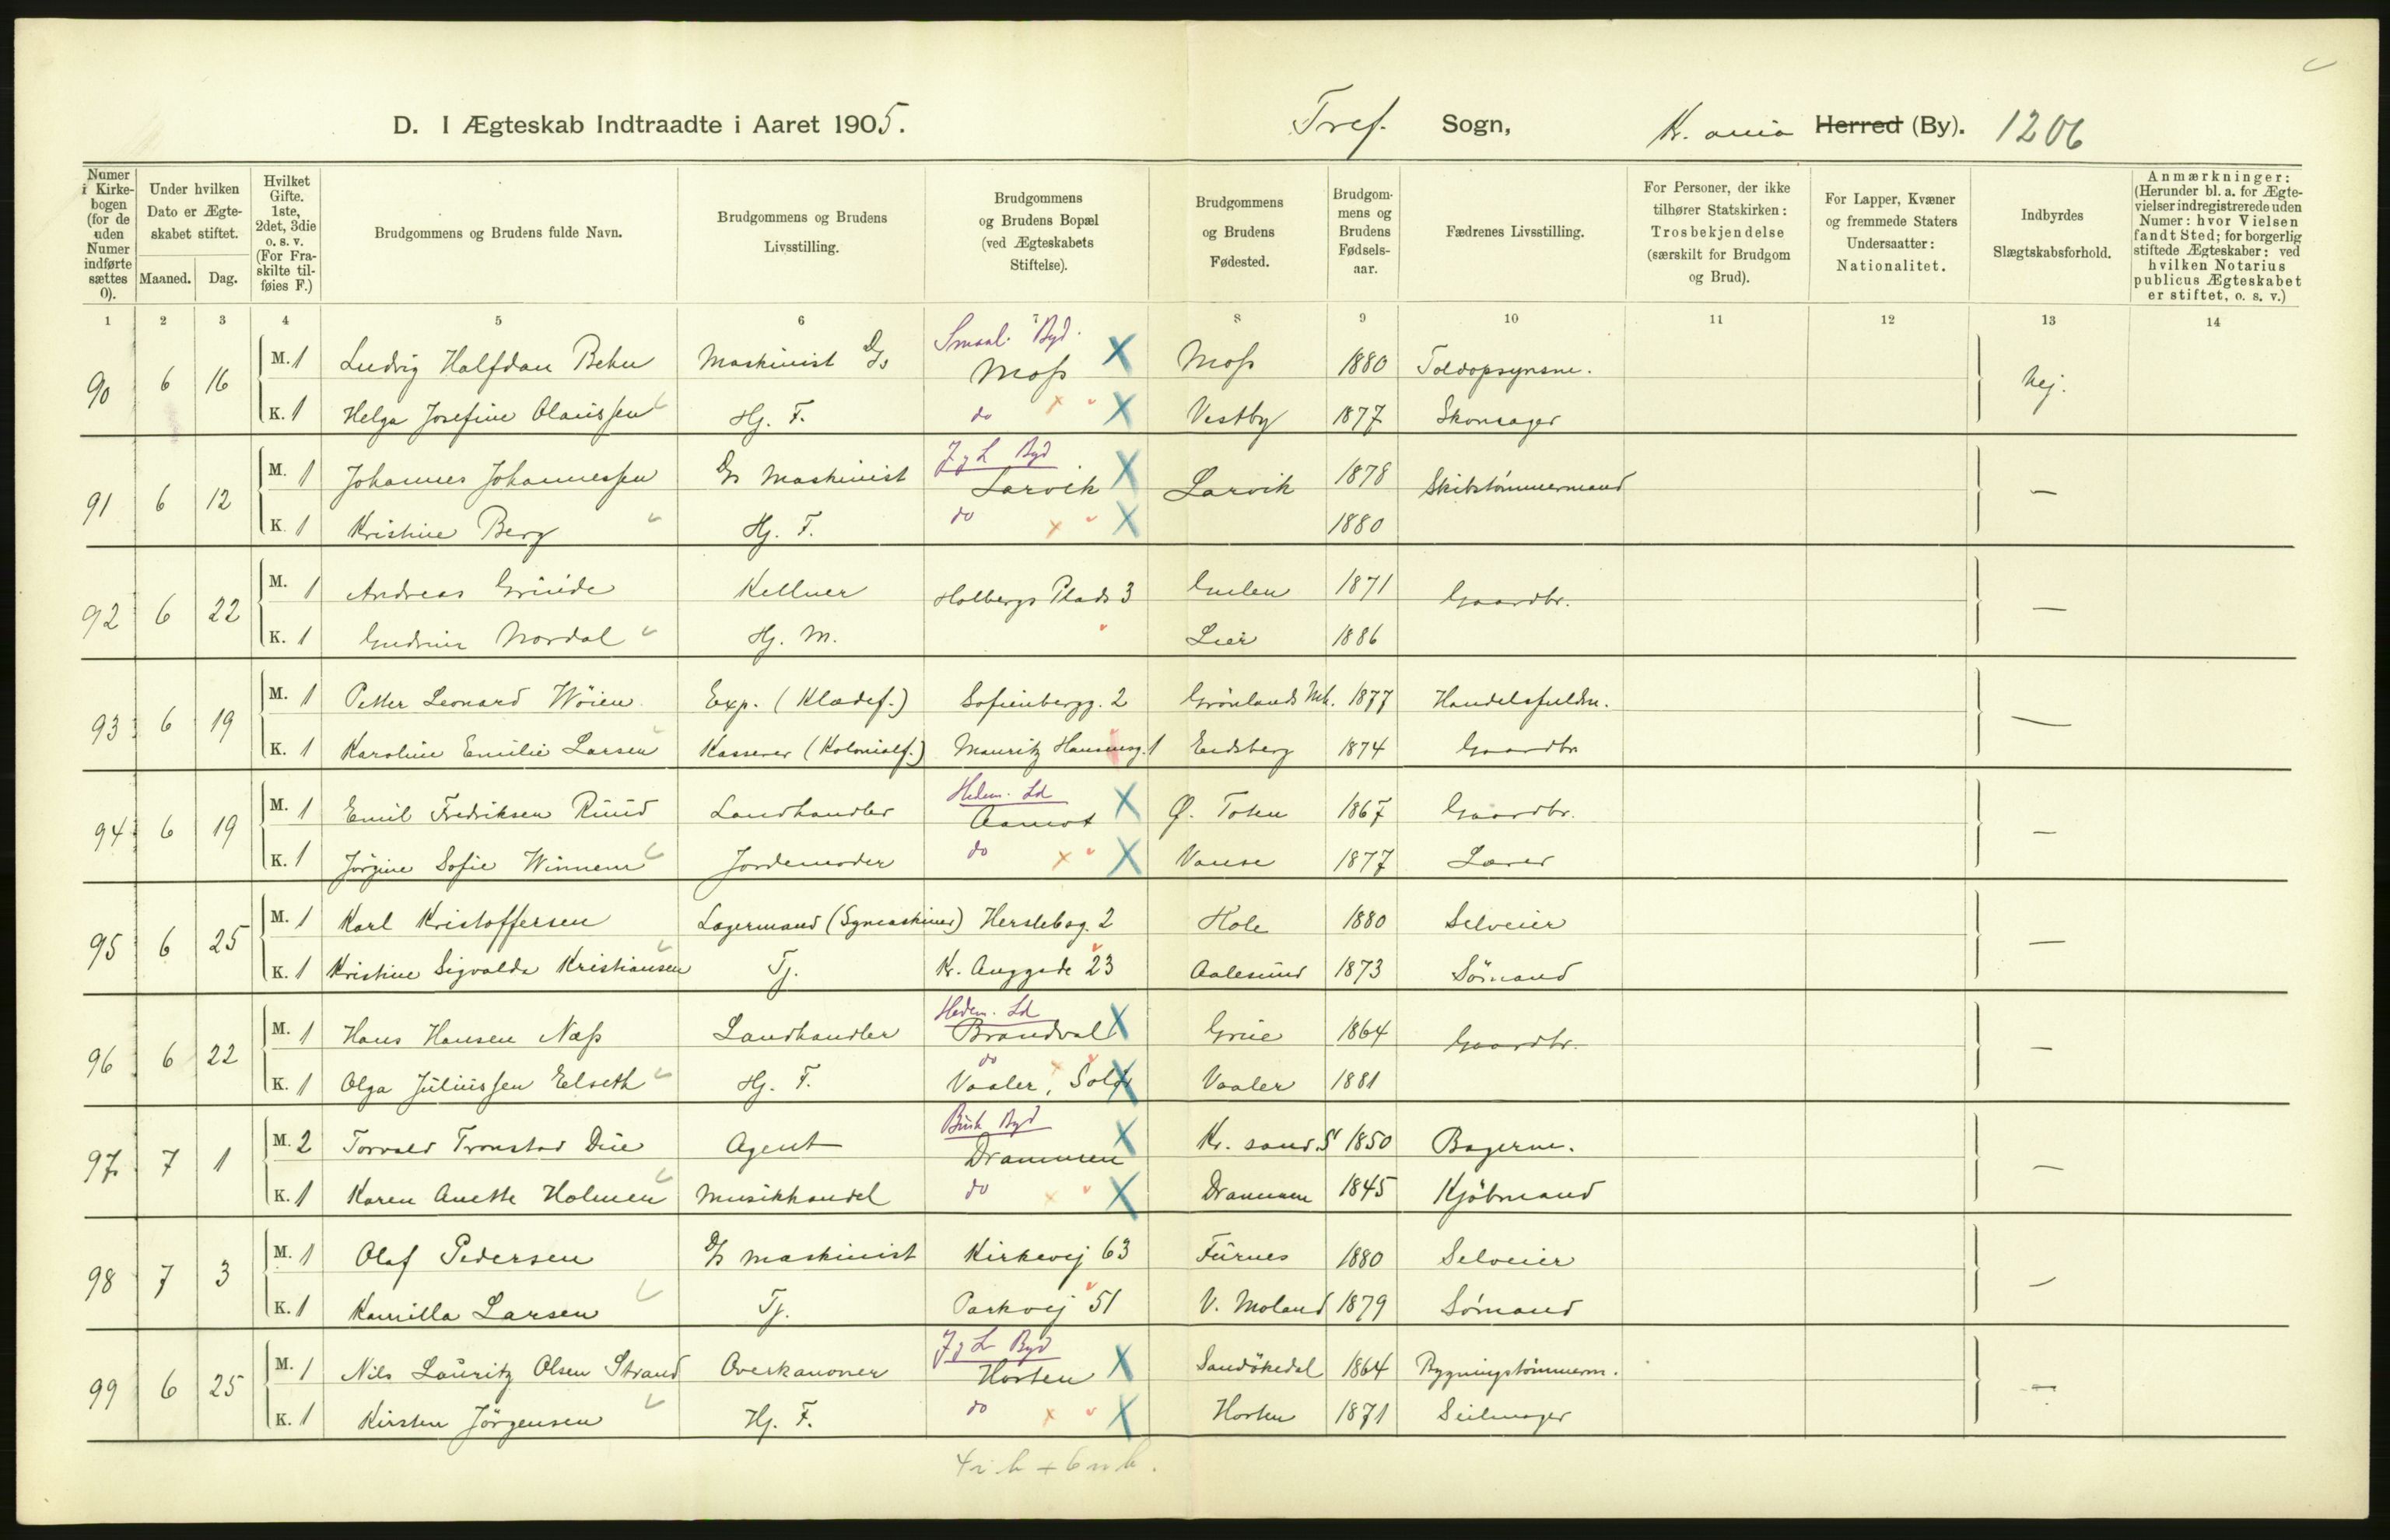 D. I Ægteskab Indtraadte i Aaret 1905. Tref. Sogn, Kr. ania Herred (By). 1206
Numer i Kirkebogen (for de uden Numer indførte sættes 0).
Under hvilken Dato er Ægteskabet stiftet.
Maaned. Dag.
Hvilket Gifte. 1ste, 2det, 3die o. s. v. (For Fraskilte tilføies F.)
Brudgommens og Brudens fulde Navn.
Brudgommens og Brudens Livsstilling.
Brudgommens og Brudens Bopæl (ved Ægteskabets Stiftelse).
Brudgommens og Brudens Fødested.
Brudgommens og Brudens Fødselsaar.
Fædrenes Livsstilling.
For Personer, der ikke tilhører Statskirken: Trosbekjendelse (særskilt for Brudgom og Brud).
For Lapper, Kvæner og fremmede Staters Undersaatter: Nationalitet.
Indbyrdes Slægtskabsforhold.
Anmærkninger: (Herunder bl. a. for Ægtevielser indregistrerede uden Numer: hvor Vielsen fandt Sted; for borgerlig stiftede Ægteskaber: ved hvilken Notarius publicus Ægteskabet er stiftet, o. s. v.)
1 2 3 4 5 6 7 8 9 10 11 12 13 14
Smaal. Byd.
90 6 16 M. 1 Ludvig Halfdan Behn Maskinist D/s Moss X Moss 1880 Toldopsynsm. Nej.
K. 1 Helga Josefine Olaussen Hj. F. do X Vestby 1877 Skomager
J g L Byd
91 6 12 M. 1 Johannes Johannessen D/s Maskinist Larvik X Larvik 1878 Skibstømmermand —
K. 1 Kristine Berg Hj. F. do X 1880
92 6 22 M. 1 Andreas Grinde Kellner Holbergs Plads 3 Gulen 1871 Gaardbr. —
K. 1 Nordal Hj. M. Lier 1886
93 6 19 M. 1 Petter Leonard Wöien Exp. (Klædef.) Sofienbergg. 2 Grönlands Mh. 1877 Handelsfuldm. —
K. 1 Karoline Emilie Larsen Kasserer (Kolonialf.) Mauritz Hansensg. 1 Eidsberg 1874 Gaardbr
Hedem. Ld
94 6 19 M. 1 Emil Fredriksen Ruud Landhandler Aamot X Ø. Toten 1867 Gaardbr. —
K. 1 Jörgine Sofie Winnem Jordemoder do X Vanse 1877 Lærer
95 6 25 M. 1 Karl Kristoffersen Lagermand (Symaskiner) Herslebsg. 2 Hole 1880 Selveier —
K. 1 Kristine Sigvalda Kristiansen Tj. Kr. Auggade 23 Aalesund 1873 Sömand
Hedem. Ld
96 6 22 M. 1 Hans Hansen Næss Landhandler Brandval X Grue 1864 Gaardbr. —
do
K. 1 Olga Juliussen Elseth Hj. F. Vaaler, Solör X Vaaler 1881
Busk Byd
97 7 1 M. 2 Torvald Tronstad Due Agent Drammen X Kr. sand S 1850 Bagerm. —
K. 1 Karen Anette Holmen Musikhandel do X Drammen 1845 Kjöbmand
98 7 3 M. 1 Olaf Pedersen D/s Maskinist Kirkevej 63 Furnes 1880 Selveier —
K. 1 Kamilla Larsen Tj. Parkvej 51 V. Moland 1879 Sömand
J g L Byd
99 6 25 M. 1 Nils Lauritz Olsen Strand Overkanoner Horten X Sandökedal 1864 Bygningstömmerm. —
K. 1 Kirsten Jörgensen Hj. F. do X Horten 1871 Seilmager